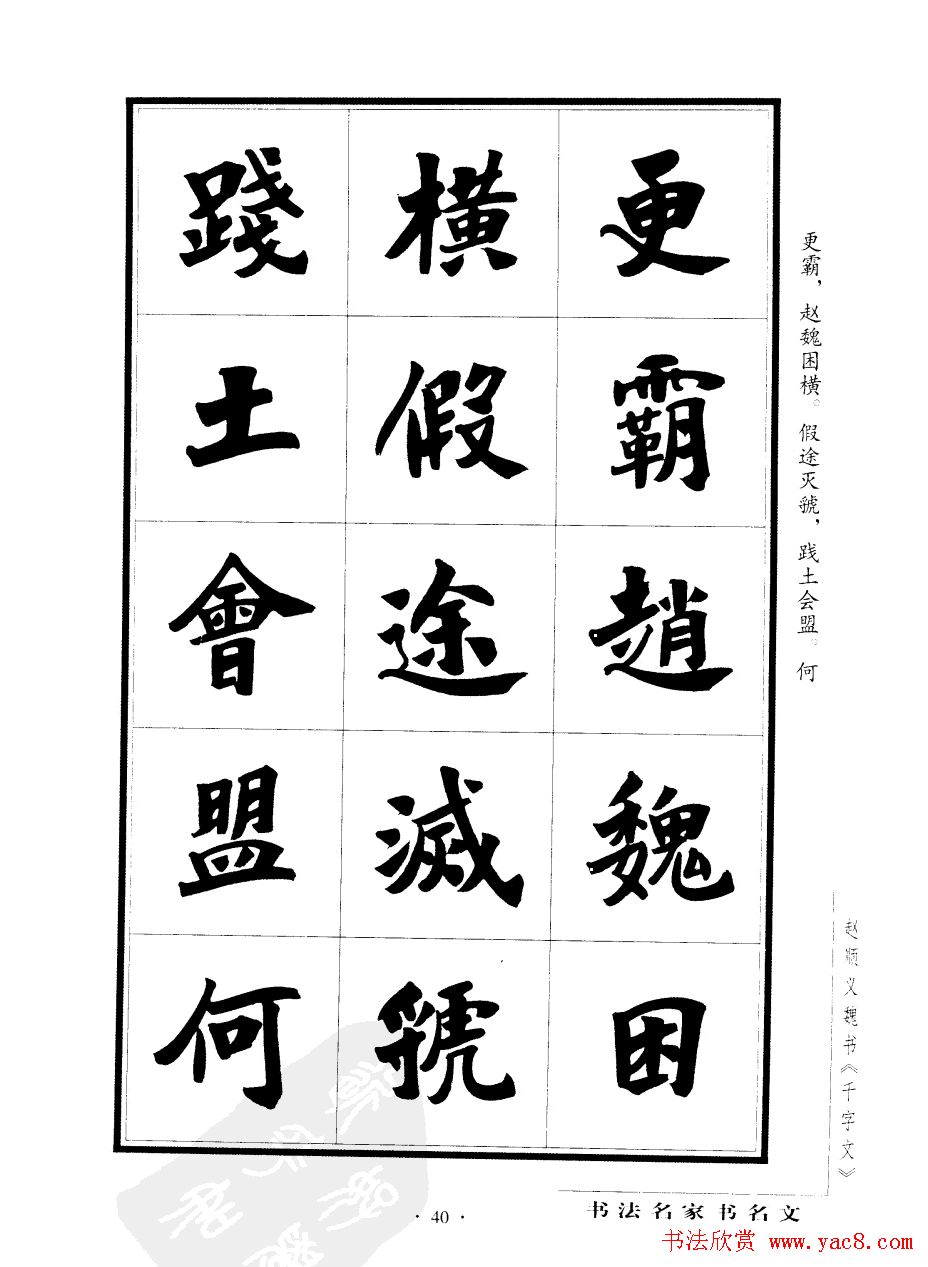 更霸趙魏困
橫假途滅虢
踐土會盟何
更霸，赵魏困横。假途灭虢，践土会盟。何
赵顺义魏书《千字文》
·40·
书法名家书名文
书法欣赏 www.yac8.com